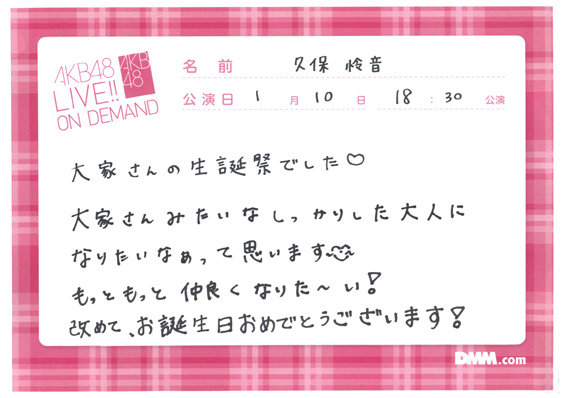 AKB48
LIVE!!
ON DEMAND
AKB
48
名前 久保 怜音
公演日 1月10日 18:30 公演
大家さんの生誕祭でした♡
大家さんみたいなしっかりした大人に
なりたいなぁって思います
もっともっと仲良くなりた〜い!
改めて、お誕生日おめでとうございます!
DMM.com